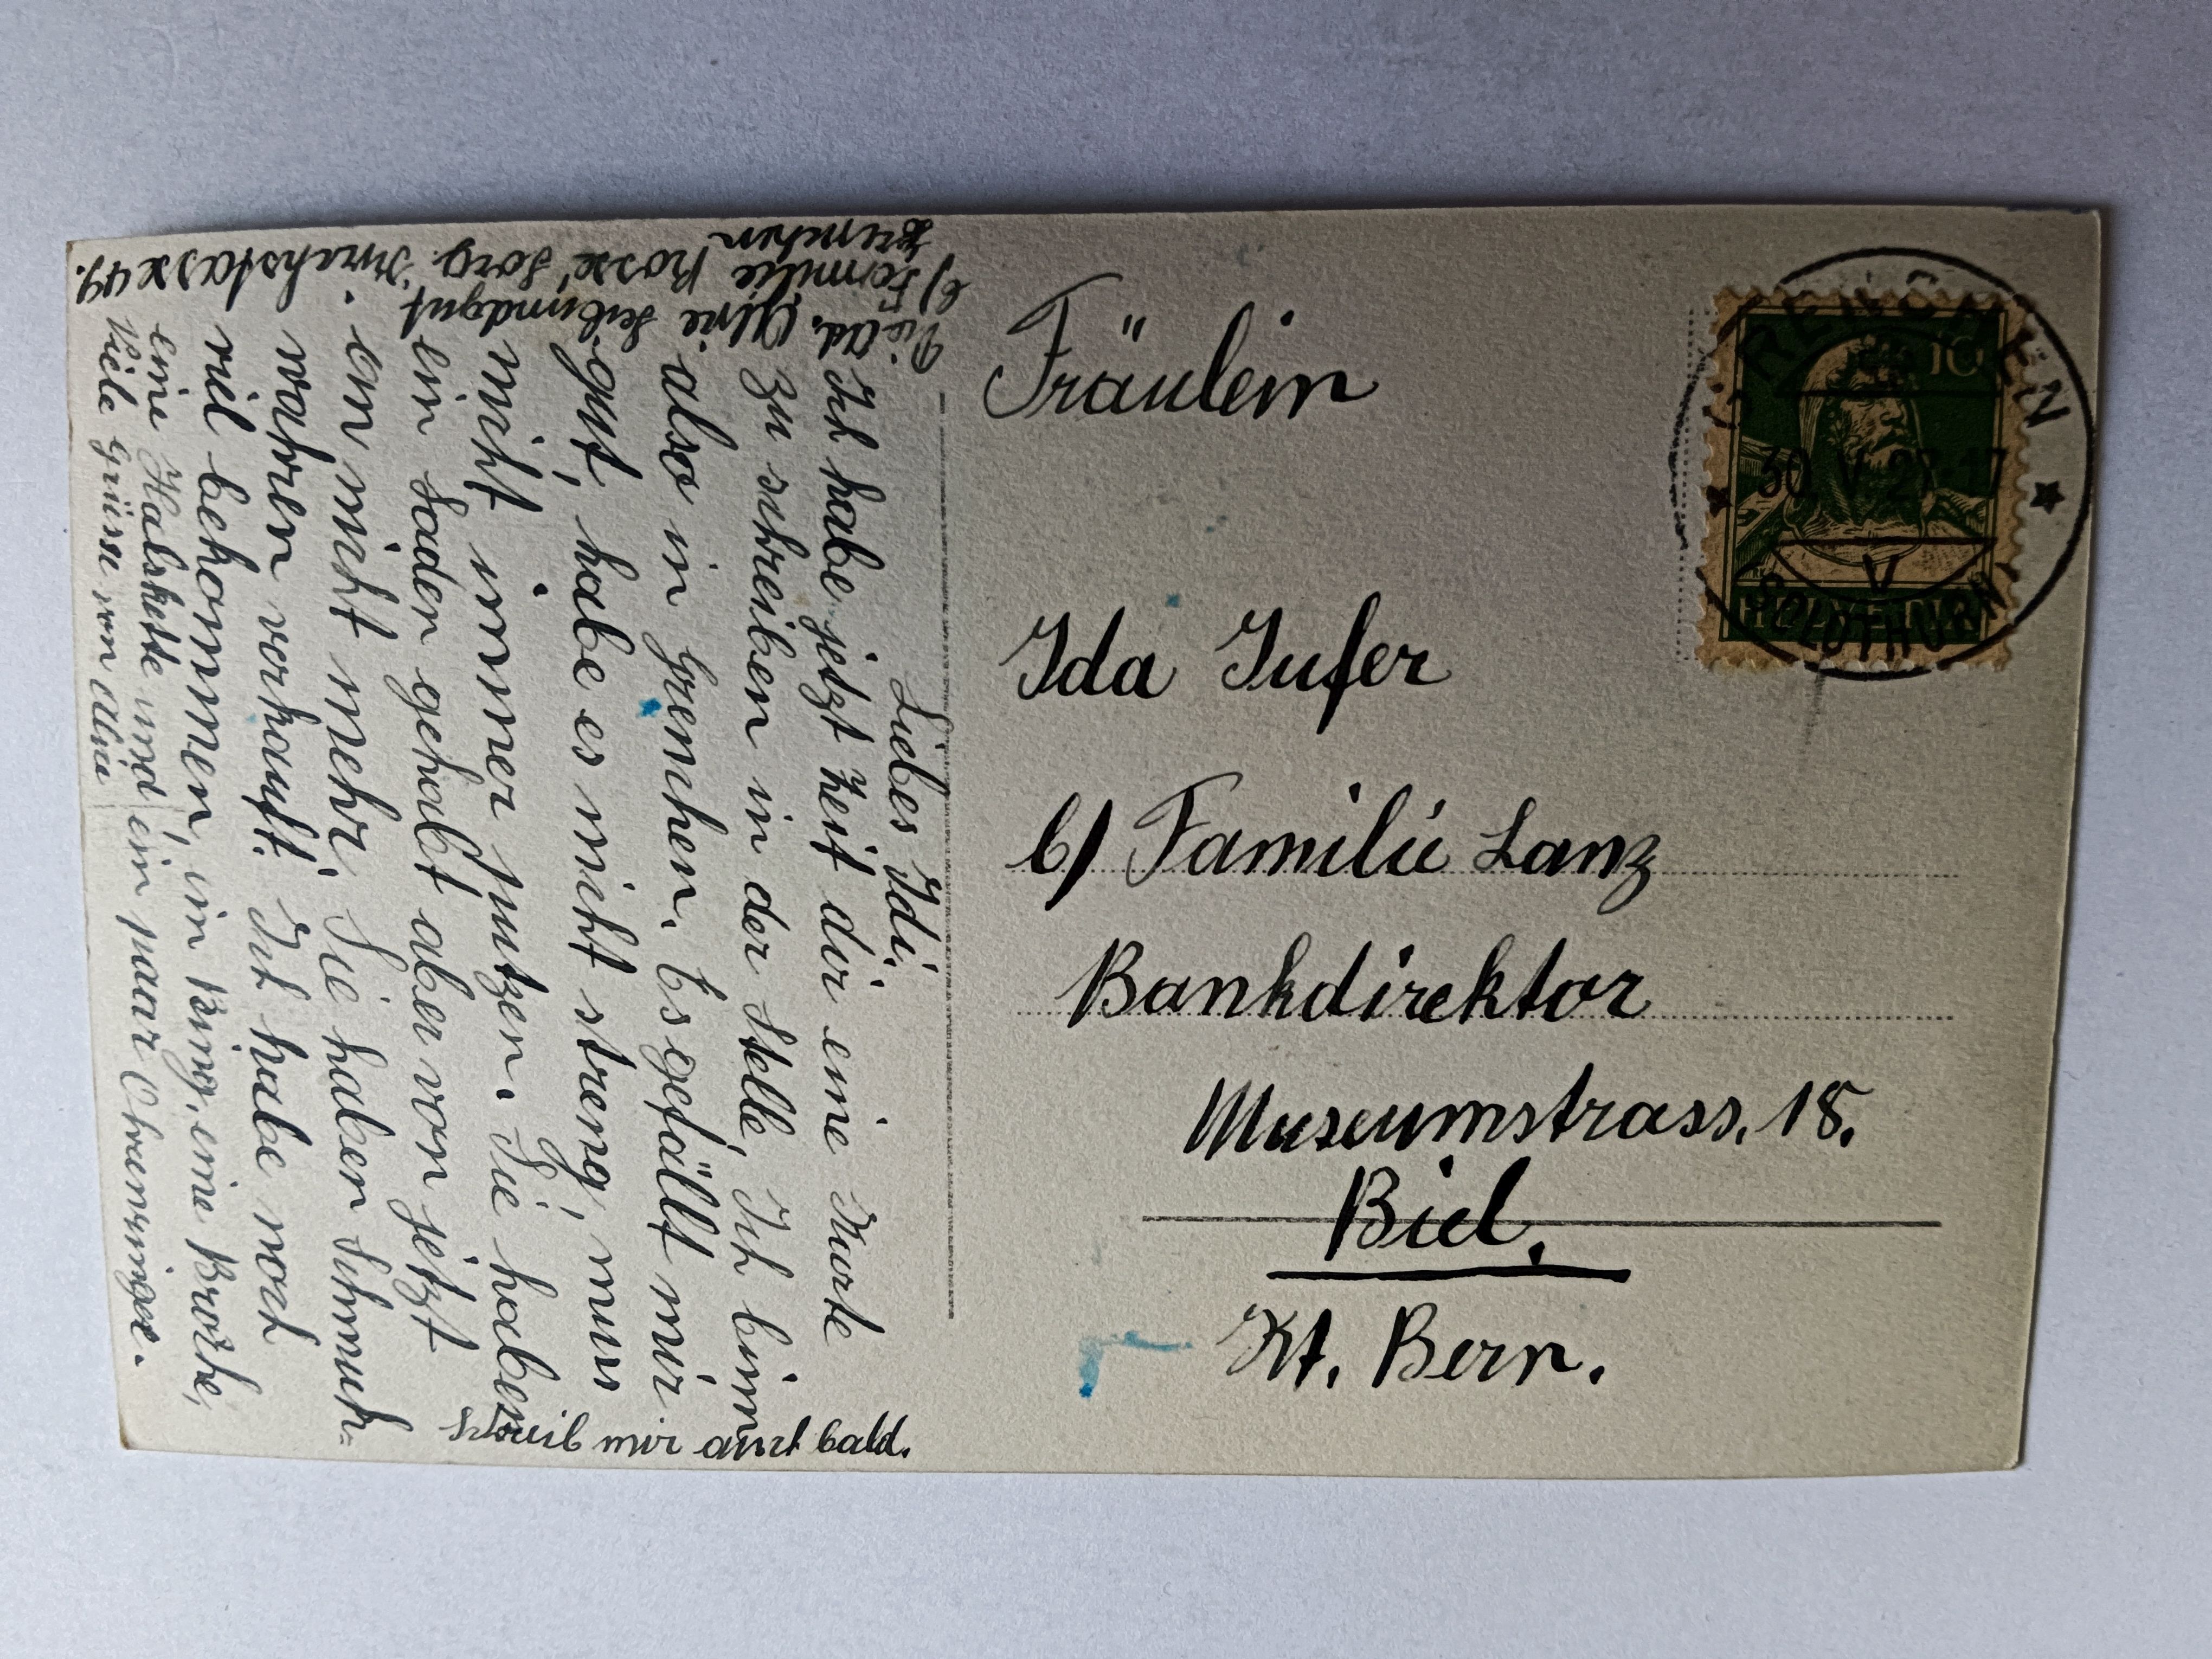 Liebes Idi.
Ich habe jetzt Zeit dir eine Karte
zu schreiben in der Stelle, Ich binn
also in Grenchen. Es gefällt mir
gut, habe es nicht streng, muss
nicht immer putzen. Sie haben
ein Laden gehabt aber von jetzt
an nicht mehr. Sie haben Schmuck=
wahren verkauft. Ich habe noch
viel bekommen, ein Ring, eine Brosche,
eine Halskette und ein paar Ohrenringe.
Viele Grüsse von Alie
Schreib mir auch bald.
Die Ad. Alie
b/ Familie Sorg.
49.
Grenchen
Fräulein
Ida Jufer
b/ Familie Lanz
Bankdirektor
Museumstrass. 18.
Biel.
Kt. Bern.
GRENCHEN
10
30. V. 27-17
V
HELVETIA
SOLOTHURN